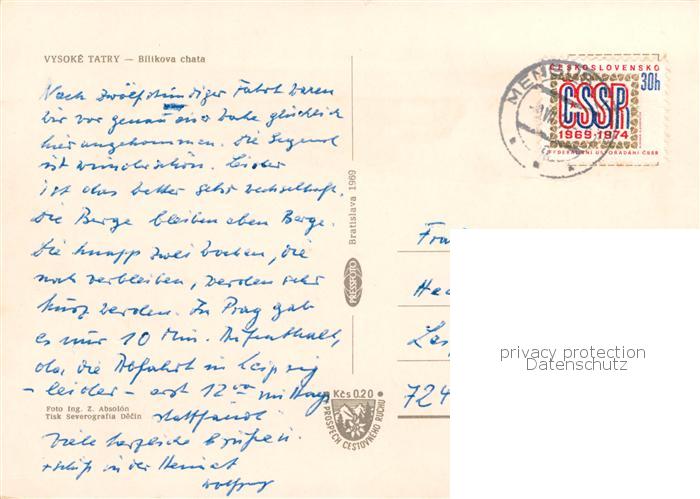 VYSOKÉ TATRY — Bilikova chata
Nach zwölfstündiger Fahrt waren
wir vor genau einer Woche glücklich
hier angekommen. Die Gegend
ist wunderschön. Leider
ist das Wetter sehr wechselhaft.
Die Berge bleiben eben Berge.
Die knapp zwei Wochen, die
noch verbleiben, werden sehr
kurz werden. In Prag gab
es nur 10 Min. Aufenthalt,
da die Abfahrt in Leipzig
- leider - erst 12 00 mittags
stattfand.
Viele herzliche Grüße in
in der Heimat
Wolfgang
Foto Ing. Z. Absolón
Tisk Severografia Děčín
Bratislava 1969
PRESSFOTO
Kčs 0.20
PROSPĚCH CESTOVNÉHO RUCHU
ČESKOSLOVENSKO
30h
ČSSR
1969-1974
FEDERATIVNÍ USPOŘÁDÁNÍ ČSSR
MEN
724
privacy protection
Datenschutz